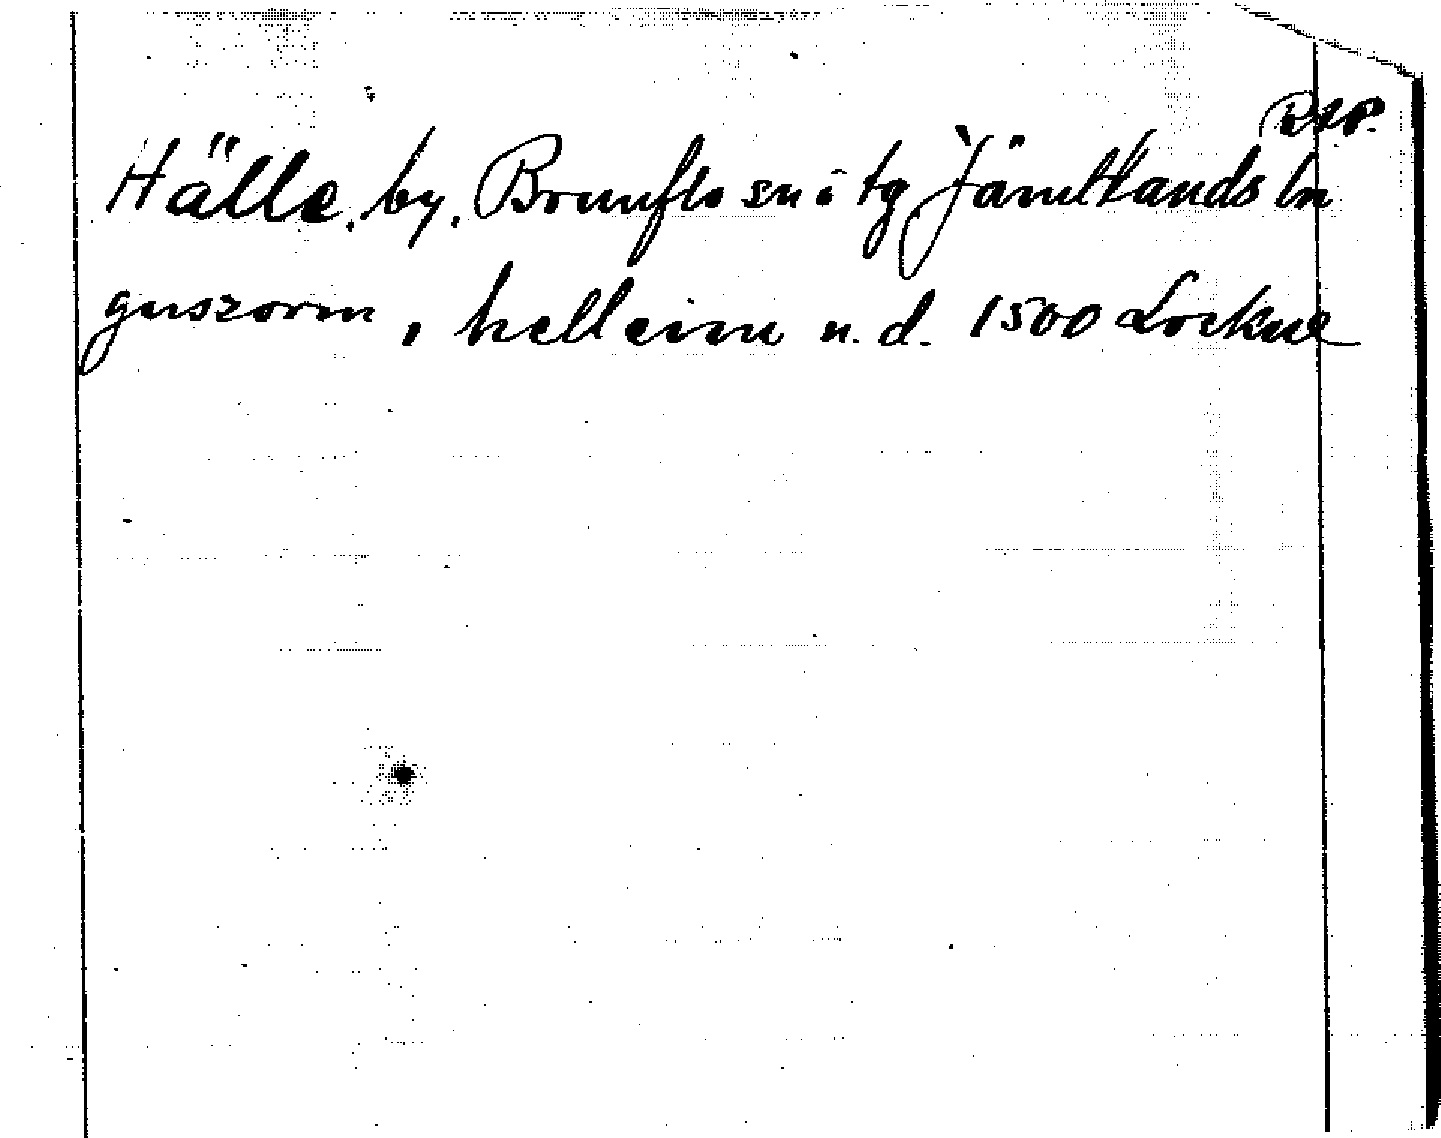 Hälle, by, Brunflo sn i tg Jämtlands ln
guszorm, helleim u.d. 1500 Lockne